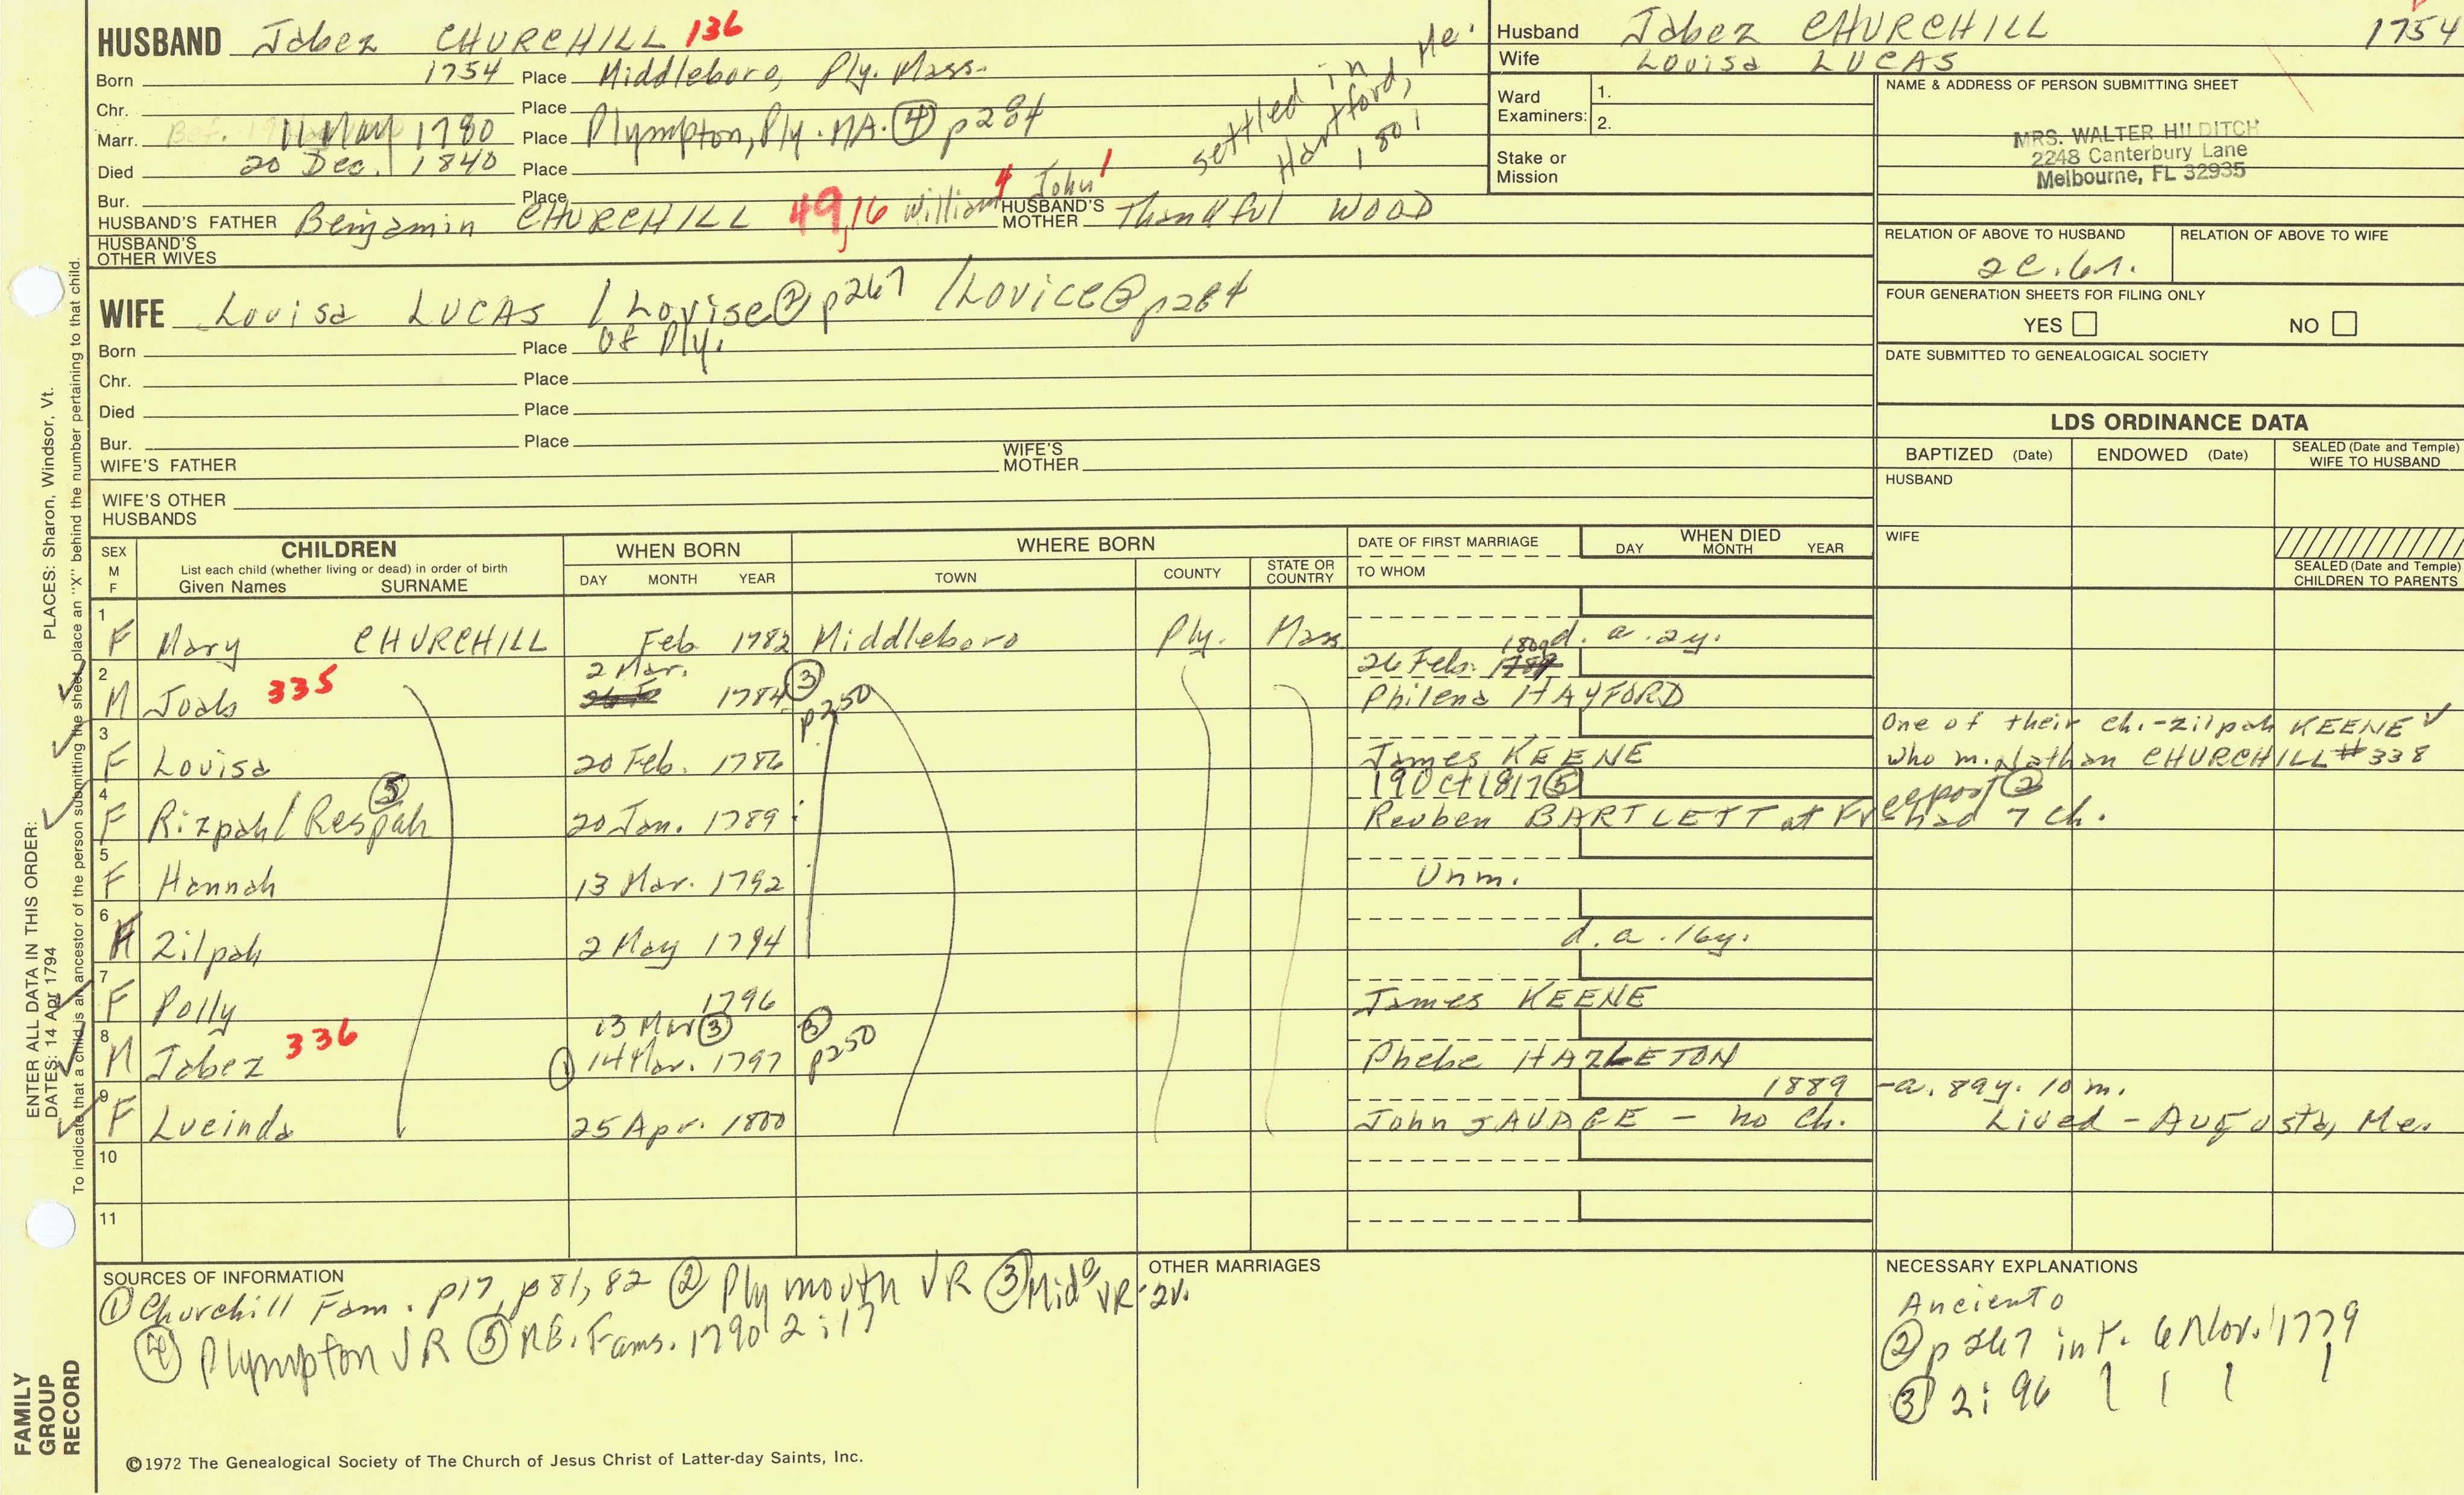 HUSBAND Jabez CHURCHILL 136
Born 1754 Place Middleboro, Ply. Mass.
Chr. Place
Marr. Bef. 11 May 1780 Place Plympton, Ply. MA. ④ p284
Died 20 Dec. 1840 Place
Bur. Place
settled in Hartford, Me. 1801
HUSBAND'S FATHER Benjamin CHURCHILL 49,16 William4 John1 HUSBAND'S MOTHER Thankful WOOD
HUSBAND'S OTHER WIVES
WIFE Louisa LUCAS / Lovise② p267 / Lovice③ p284
Born Place of Ply.
Chr. Place
Died Place
Bur. Place
WIFE'S FATHER WIFE'S MOTHER
WIFE'S OTHER HUSBANDS
Husband Jabez CHURCHILL 1754
Wife Louisa LUCAS
Ward Examiners: 1. 2.
Stake or Mission
NAME & ADDRESS OF PERSON SUBMITTING SHEET
MRS. WALTER HILDITCH
2248 Canterbury Lane
Melbourne, FL 32935
RELATION OF ABOVE TO HUSBAND RELATION OF ABOVE TO WIFE
FOUR GENERATION SHEETS FOR FILING ONLY
YES NO
DATE SUBMITTED TO GENEALOGICAL SOCIETY
LDS ORDINANCE DATA
BAPTIZED (Date) ENDOWED (Date) SEALED (Date and Temple) WIFE TO HUSBAND
HUSBAND
WIFE
SEALED (Date and Temple) CHILDREN TO PARENTS
SEX M F CHILDREN WHEN BORN WHERE BORN DATE OF FIRST MARRIAGE WHEN DIED
List each child (whether living or dead) in order of birth
Given Names SURNAME DAY MONTH YEAR TOWN COUNTY STATE OR COUNTRY TO WHOM DAY MONTH YEAR
1 F Mary CHURCHILL Feb 1782 Middleboro Ply. Mass. d. a. 2y.
2 M Joab 335 2 Mar. 1784 ③ p250 26 Feb. 1809 Philena HAYFORD
3 F Louisa 20 Feb. 1786 James KEENE One of their ch.-Zilpah KEENE
who m. Nathan CHURCHILL #338
4 F Rizpah/Respah ⑤ 20 Jan. 1789 19 Oct 1817 ⑤ Reuben BARTLETT at Freeport ② had 7 ch.
5 F Hannah 13 Mar. 1792 Unm.
6 F Zilpah 2 May 1794 d. a. 16y.
7 F Polly 1796 James KEENE
8 M Jabez 336 13 Mar ③ ① 14 Mar. 1797 ③ p250 Phebe HAZLETON
9 F Lucinda 25 Apr. 1800 John SAVAGE - no ch. 1889 -a. 89y. 10 m.
Lived - Augusta, Me.
10
11
SOURCES OF INFORMATION
① Churchill Fam. p17, p81, 82 ② Plymouth VR ③ Mido VR 2v.
④ Plympton VR ⑤ ME. Fams. 1790 2:17
OTHER MARRIAGES
NECESSARY EXPLANATIONS
② p267 int. 6 Nov. 1779
③ 2:96
©1972 The Genealogical Society of The Church of Jesus Christ of Latter-day Saints, Inc.
FAMILY GROUP RECORD
ENTER ALL DATA IN THIS ORDER:
DATES: 14 Apr 1794
PLACES: Sharon, Windsor, Vt.
To indicate that a child is an ancestor of the person submitting the sheet, place an "X" behind the number pertaining to that child.